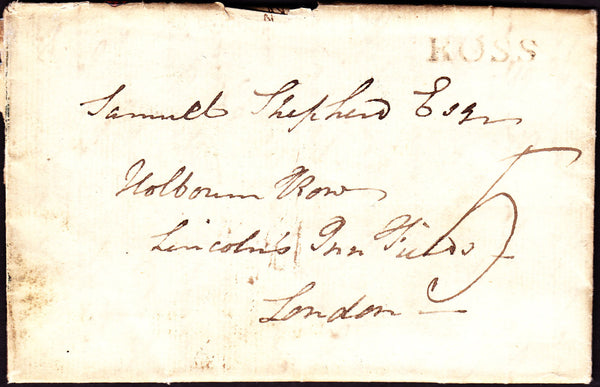 ROSS
Samuel Shepherd Esqr
Holbourn Row
Lincoln's Inn Fields
5
London